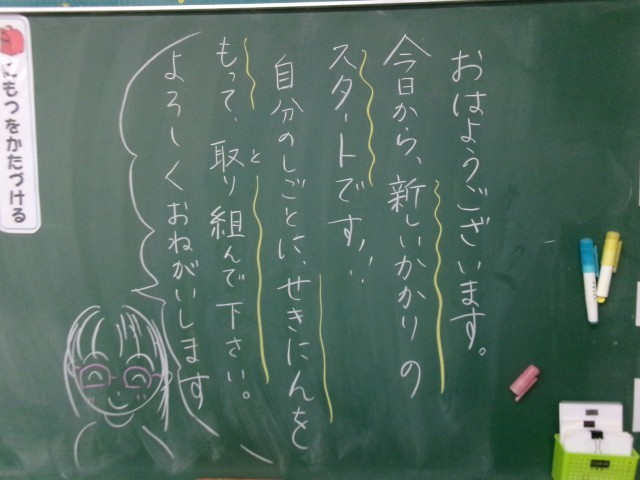 おはようございます。
今日から、新しいかかりの
スタートです!!
自分のしごとに、せきにんを
もって、取り組んで下さい。
と
よろしくおねがいします
にもつをかたづける